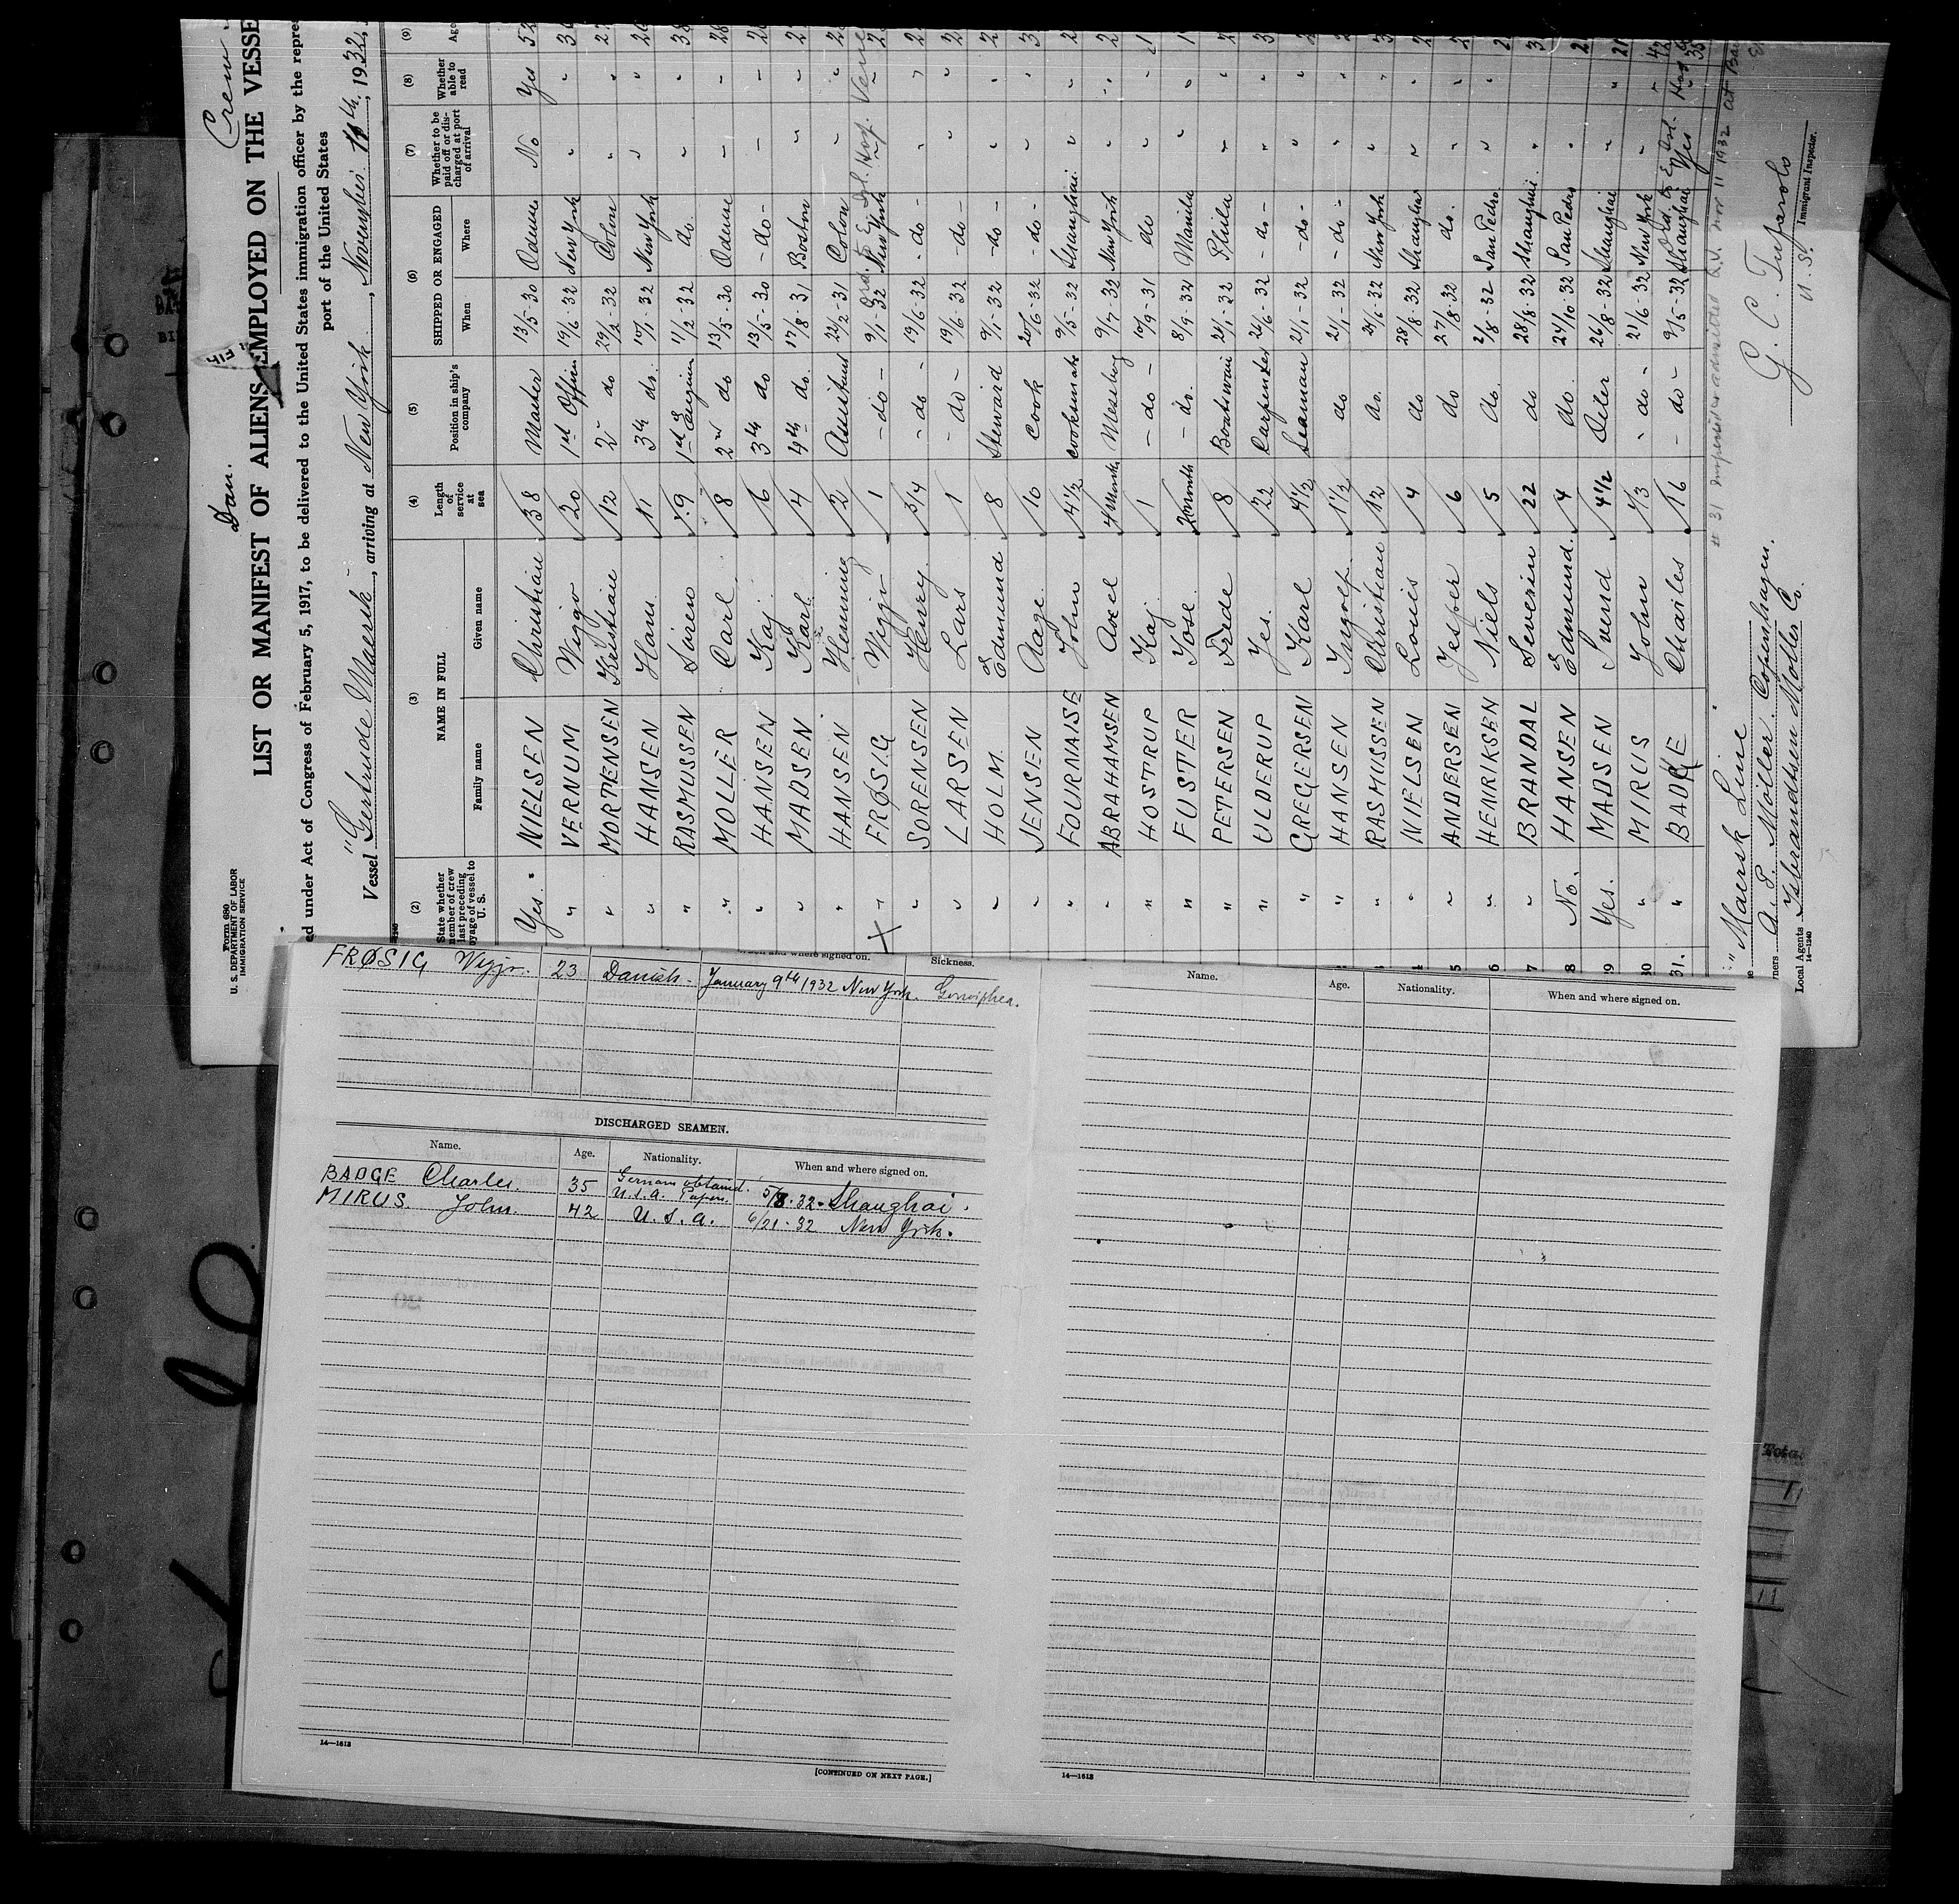 Crew.
Dan.
Form 680
U. S. DEPARTMENT OF LABOR
IMMIGRATION SERVICE
LIST OR MANIFEST OF ALIENS EMPLOYED ON THE VESSE
ed under Act of Congress of February 5, 1917, to be delivered to the United States immigration officer by the repre
port of the United States
Vessel "Gertrude Maersk", arriving at New York, November 11th, 1932,
(2) (3) (4) (5) (6) (7) (8) (9)
State whether member of crew last preceding voyage of vessel to U. S. NAME IN FULL Length of service at sea Position in ship's company SHIPPED OR ENGAGED Whether to be paid off or discharged at port of arrival Whether able to read Age
Family name Given name When Where
Yes. NIELSEN Christian 38 Master 13/5-30 Odense No Yes 52
" VERNUM Viggo 20 1st Officer 19/6-32 New York " "
" MORTENSEN Kristian 12 2 do 29/2-32 Colon " "
" HANSEN Hans 11 3th do. 10/1-32 New York " "
" RASMUSSEN Sören 9 1st Engineer 11/2-32 do. " "
" MOLLER Carl 8 2nd do 13/5-30 Odense " "
" HANSEN Kaj 6 3th do 13/5-30 -do- " "
" MADSEN Karl 4 4th do. 17/8-31 Boston " "
" HANSEN Henning 2 Assistant 22/2-31 Colon " "
X " FRØSIG Viggo 1 -do- 9/1 32 New York
" SORENSEN Henry 3/4 -do- 19/6-32 -do- " "
" LARSEN Lars 1 -do- 19/6-32 -do- " "
" HOLM Edmund 8 Steward 9/1-32 -do- " "
" JENSEN Aage 10 Cook 20/6-32 -do- " "
" FOURNAISE John 4 1/2 Cooksmate 9/5-32 Shanghai " "
" ABRAHAMSEN Axel 4 Months Messboy 9/7-32 New York " "
" HOSTRUP Kaj 1 -do- 10/9-31 do " "
" FUSTER Jose 2 month -do. 8/9-32 Manila " "
" PETERSEN Frede 8 Boatswain 24/1-32 Phila " "
" ULDERUP Jes. 22 Carpenter 26/6-32 -do- " "
" GREGERSEN Karl 4 1/2 Seaman 21/1-32 -do- " "
" HANSEN Ingolf 1 1/2 do 21/1-32 -do- " "
" RASMUSSEN Christian 12 do. 24/6-32 New York " "
" NIELSEN Louis 4 do 28/8-32 Shanghai " "
" ANDERSEN Jesper 6 do 27/8-32 do. " "
" HENRIKSEN Niels 5 do. 2/8-32 San Pedro. " "
7 " BRANDAL Severin 22 do 28/8-32 Shanghai "
8 No. HANSEN Edmund. 4 do. 24/10-32 San Pedro "
9 Yes. MADSEN Svend 4 1/2 Oiler 26/8-32 Shanghai " "
30 " MIRUS John 1/3 -do- 21/6-32 New York " "
31. " BADGE Charles 16 -do- 9/5-32 Shanghai Yes " 35
# 31 admitted Nov 11 1932 at
"Maersk Line"
A. P. Möller. Copenhagen.
Local Agents Isbrandtsen Moller Co.
14—1240
U. S. Immigrant Inspector.
When and where signed on. Sickness.
FRØSIG Viggo. 23 Danish- January 9th 1932 New York. Gonorrhea.
DISCHARGED SEAMEN.
Name. Age. Nationality. When and where signed on.
BADGE Charles. 35 German obtained U.S.A. Papers. 5/8-32- Shanghai.
MIRUS. John. 42 U. S. A. 6/21-32 New York.
14—1613
[CONTINUED ON NEXT PAGE.]
Name. Age. Nationality. When and where signed on.
14—1613
Tota